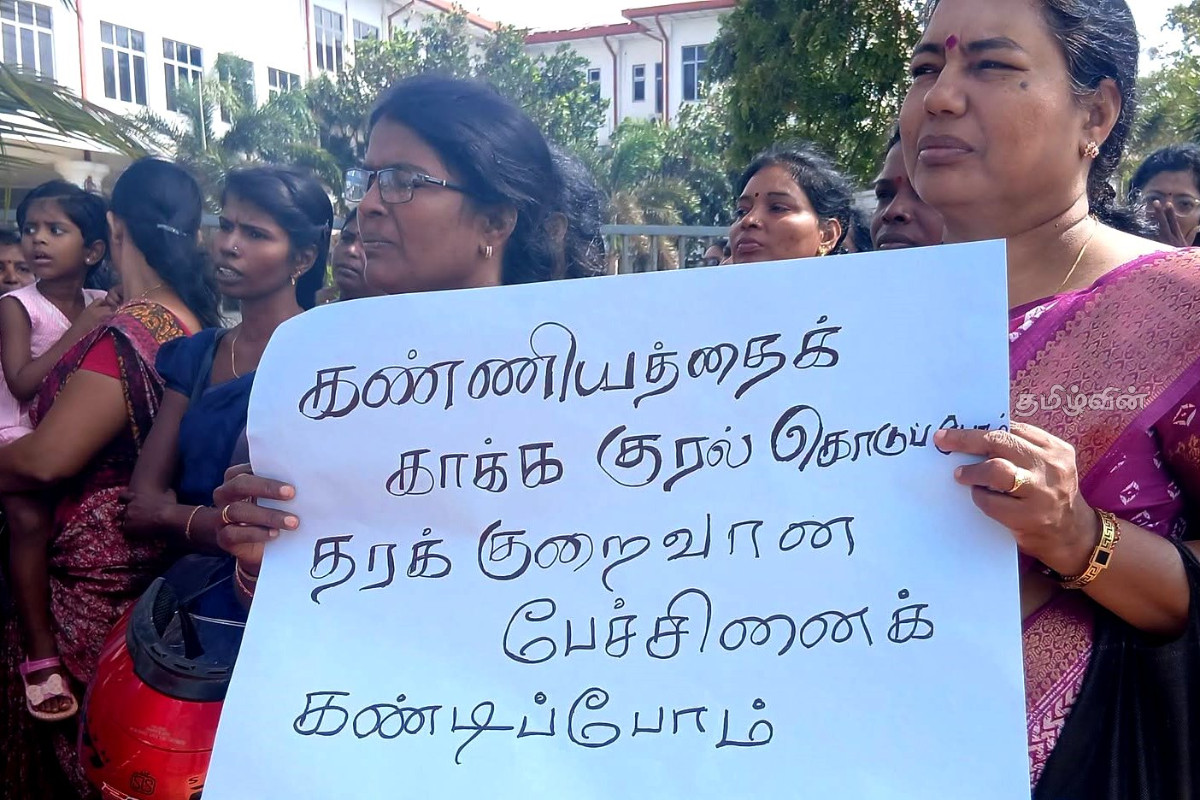 கண்ணியத்தைக்
காக்க குரல் கொடுப்போம்
தரக் குறைவான
பேச்சினைக்
கண்டிப்போம்
தமிழ்வின்